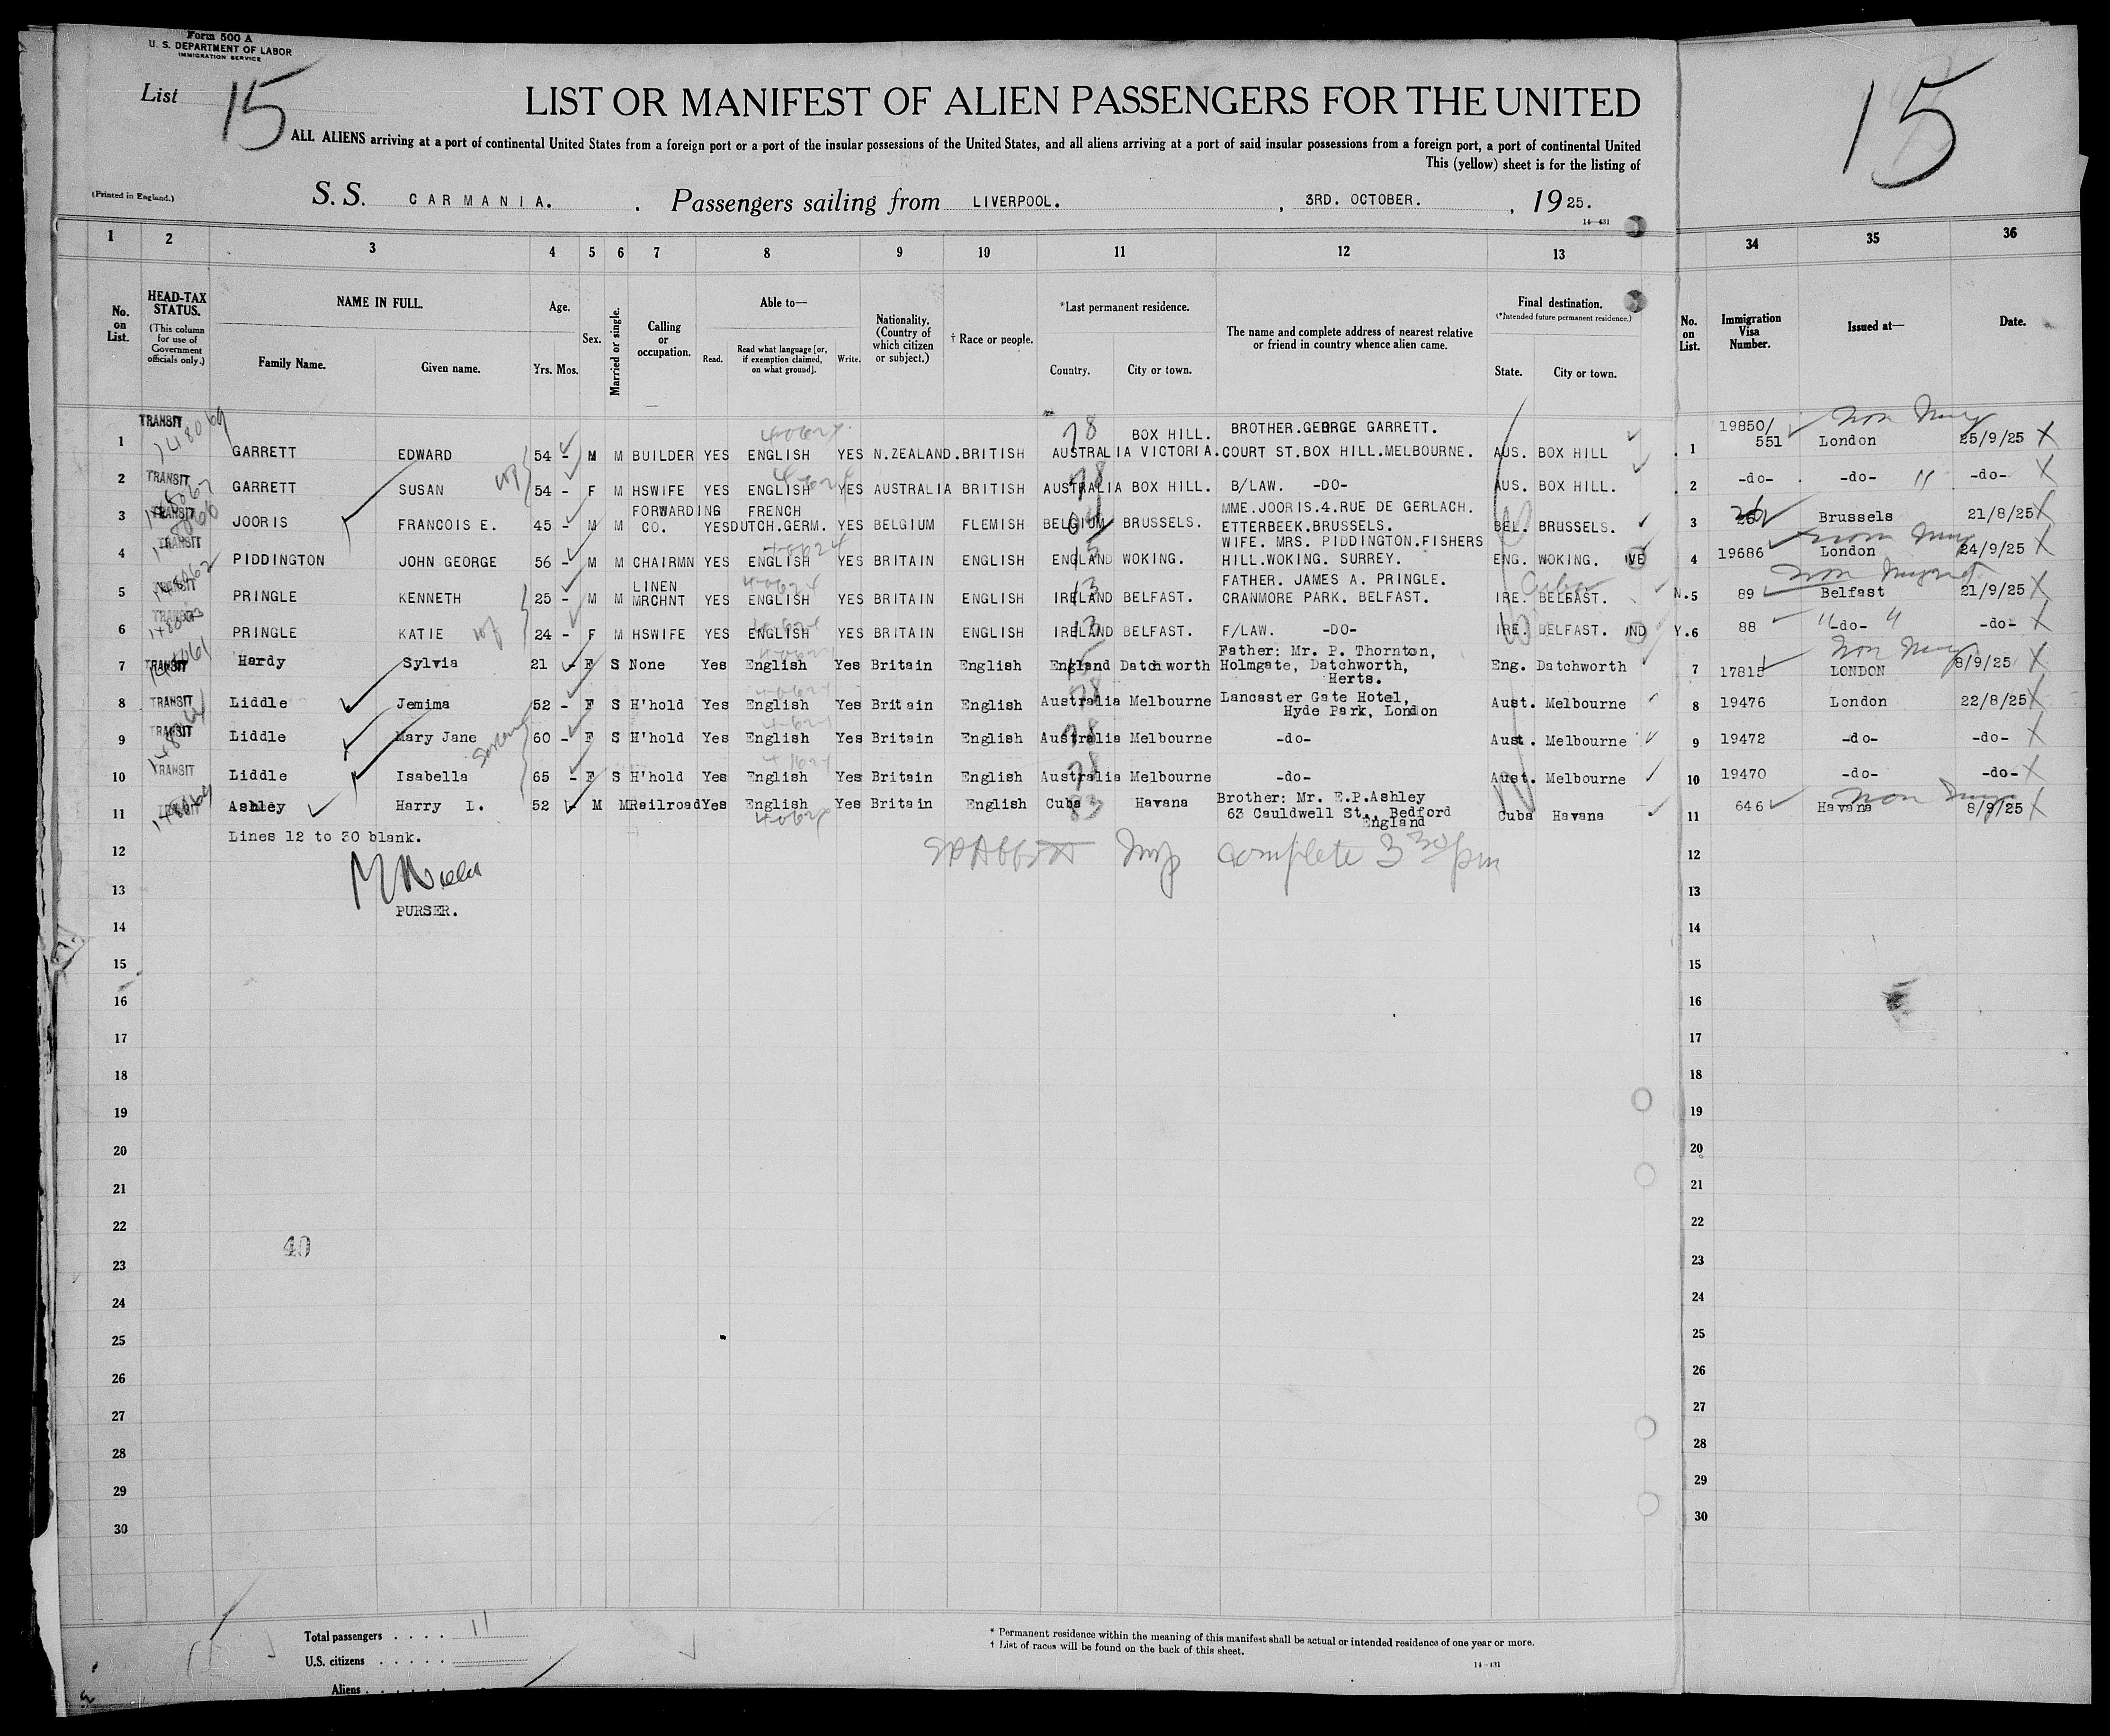 Form 500 A
U. S. DEPARTMENT OF LABOR
IMMIGRATION SERVICE
List 15
15
LIST OR MANIFEST OF ALIEN PASSENGERS FOR THE UNITED
ALL ALIENS arriving at a port of continental United States from a foreign port or a port of the insular possessions of the United States, and all aliens arriving at a port of said insular possessions from a foreign port, a port of continental United
This (yellow) sheet is for the listing of
(Printed in England.)
S. S. CARMANIA. . Passengers sailing from LIVERPOOL. , 3RD. OCTOBER. , 19 25.
14—431
1 2 3 4 5 6 7 8 9 10 11 12 13 34 35 36
No. on List.
HEAD-TAX STATUS.
(This column for use of Government officials only.)
NAME IN FULL.
Family Name. Given name.
Age.
Yrs. Mos.
Sex.
Married or single.
Calling or occupation.
Able to—
Read. Read what language [or, if exemption claimed, on what ground]. Write.
Nationality. (Country of which citizen or subject.)
† Race or people.
*Last permanent residence.
Country. City or town.
The name and complete address of nearest relative or friend in country whence alien came.
Final destination.
(*Intended future permanent residence.)
State. City or town.
No. on List.
Immigration Visa Number.
Issued at—
Date.
1 TRANSIT GARRETT EDWARD 54 - M M BUILDER YES ENGLISH YES N.ZEALAND. BRITISH AUSTRALIA BOX HILL. VICTORIA. BROTHER.GEORGE GARRETT. COURT ST.BOX HILL.MELBOURNE. AUS. BOX HILL 1 19850/551 London 25/9/25
2 TRANSIT GARRETT SUSAN 54 - F M HSWIFE YES ENGLISH YES AUSTRALIA BRITISH AUSTRALIA BOX HILL. B/LAW. -DO- AUS. BOX HILL. 2 -do- -do- -do-
3 TRANSIT JOORIS FRANCOIS E. 45 - M M FORWARDING CO. YES FRENCH DUTCH.GERM. YES BELGIUM FLEMISH BELGIUM BRUSSELS. MME.JOORIS.4.RUE DE GERLACH. ETTERBEEK.BRUSSELS. BEL. BRUSSELS. 3 Brussels 21/8/25
4 TRANSIT PIDDINGTON JOHN GEORGE 56 - M M CHAIRMN YES ENGLISH YES BRITAIN ENGLISH ENGLAND WOKING. WIFE. MRS. PIDDINGTON.FISHERS HILL.WOKING. SURREY. ENG. WOKING. 4 19686 London 24/9/25
5 TRANSIT PRINGLE KENNETH 25 - M M LINEN MRCHNT YES ENGLISH YES BRITAIN ENGLISH IRELAND BELFAST. FATHER. JAMES A. PRINGLE. CRANMORE PARK. BELFAST. IRE. BELFAST. Cuba N.5 89 Belfast 21/9/25
6 TRANSIT PRINGLE KATIE 24 - F M HSWIFE YES ENGLISH YES BRITAIN ENGLISH IRELAND BELFAST. F/LAW. -DO- IRE. BELFAST. Y.6 88 -do- -do-
7 TRANSIT Hardy Sylvia 21 - F S None Yes English Yes Britain English England Datchworth Father: Mr. P. Thornton, Holmgate, Datchworth, Herts. Eng. Datchworth 7 17815 LONDON 8/9/25
8 TRANSIT Liddle Jemima 52 - F S H'hold Yes English Yes Britain English Australia Melbourne Lancaster Gate Hotel, Hyde Park, London Aust. Melbourne 8 19476 London 22/8/25
9 TRANSIT Liddle Mary Jane 60 - F S H'hold Yes English Yes Britain English Australia Melbourne -do- Aust. Melbourne 9 19472 -do- -do-
10 TRANSIT Liddle Isabella 65 - F S H'hold Yes English Yes Britain English Australia Melbourne -do- Aust. Melbourne 10 19470 -do- -do-
11 Ashley Harry L. 52 - M M Railroad Yes English Yes Britain English Cuba Havana Brother: Mr. E.P.Ashley 63 Cauldwell St., Bedford England Cuba Havana 11 646 Havana 8/9/25
Lines 12 to 30 blank.
12 complete 3 30 pm 12
13 13
PURSER.
14 14
15 15
16 16
17 17
18 18
19 19
20 20
21 21
22 22
40
23 23
24 24
25 25
26 26
27 27
28 28
29 29
30 30
Total passengers . . . . 11
U.S. citizens . . . . .
Aliens . . . . . .
* Permanent residence within the meaning of this manifest shall be actual or intended residence of one year or more.
† List of races will be found on the back of this sheet.
14—431